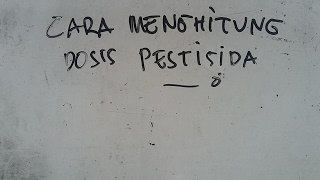 CARA MENGHITUNG
DOSIS PESTISIDA